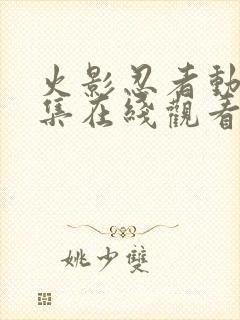 火影忍者動
集在綫觀看
姚少雙